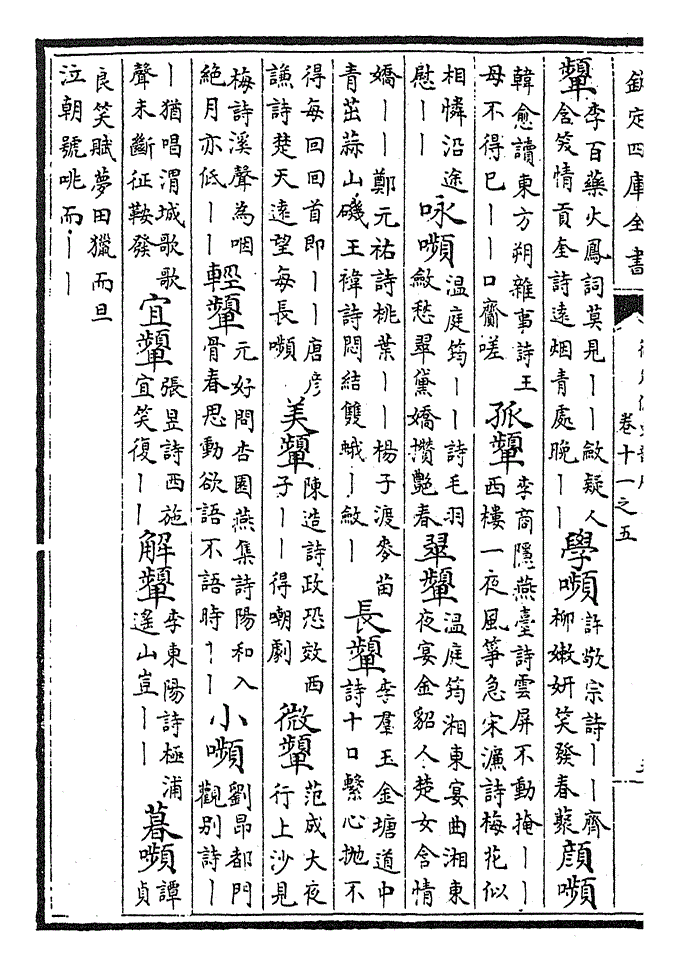 欽定四庫全書
卷十一之五
顰
李百藥火鳳詞莫見丨丨斂疑人
含笑情貢奎詩遠烟青處晚丨丨
學嚬
許敬宗詩丨丨齊
柳嫩妍笑發春藂
顔嚬
韓愈讀東方朔雜事詩王
母不得已丨丨口齎嗟
孤顰
李商隱燕臺詩雲屏不動掩丨丨
西樓一夜風箏急宋濂詩梅花似
相憐沿途
慰丨丨
咏嚬
温庭筠丨丨詩毛羽
斂愁翠黛嬌攢艷春
翠顰
温庭筠湘東宴曲湘東
夜宴金貂人楚女含情
嬌丨丨鄭元祐詩桃葉丨丨楊子渡麥苗
青茁蒜山磯王褘詩悶結雙蛾丨斂丨
長顰
李羣玉金塘道中
詩十口繫心抛不
得每回回首即丨丨唐彦
謙詩楚天遠望每長嚬
美顰
陳造詩政恐效西
子丨丨得嘲劇
微顰
范成大夜
行上沙見
梅詩溪聲為咽
絶月亦低丨丨
輕顰
元好問杏園燕集詩陽和入
骨春思動欲語不語時丨丨
小嚬
劉昻都門
觀别詩丨
丨猶唱渭城歌歌
聲未斷征鞍發
宜顰
張昱詩西施
宜笑復丨丨
解顰
李東陽詩極浦
遙山豈丨丨
暮嚬
譚
貞
良笑賦夢田獵而旦
泣朝號咷而丨丨